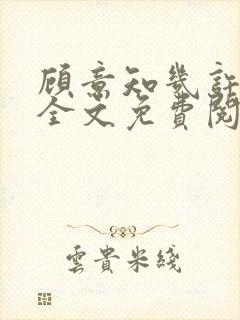 顾意知幾許
全文免費閱
雲貴米綫